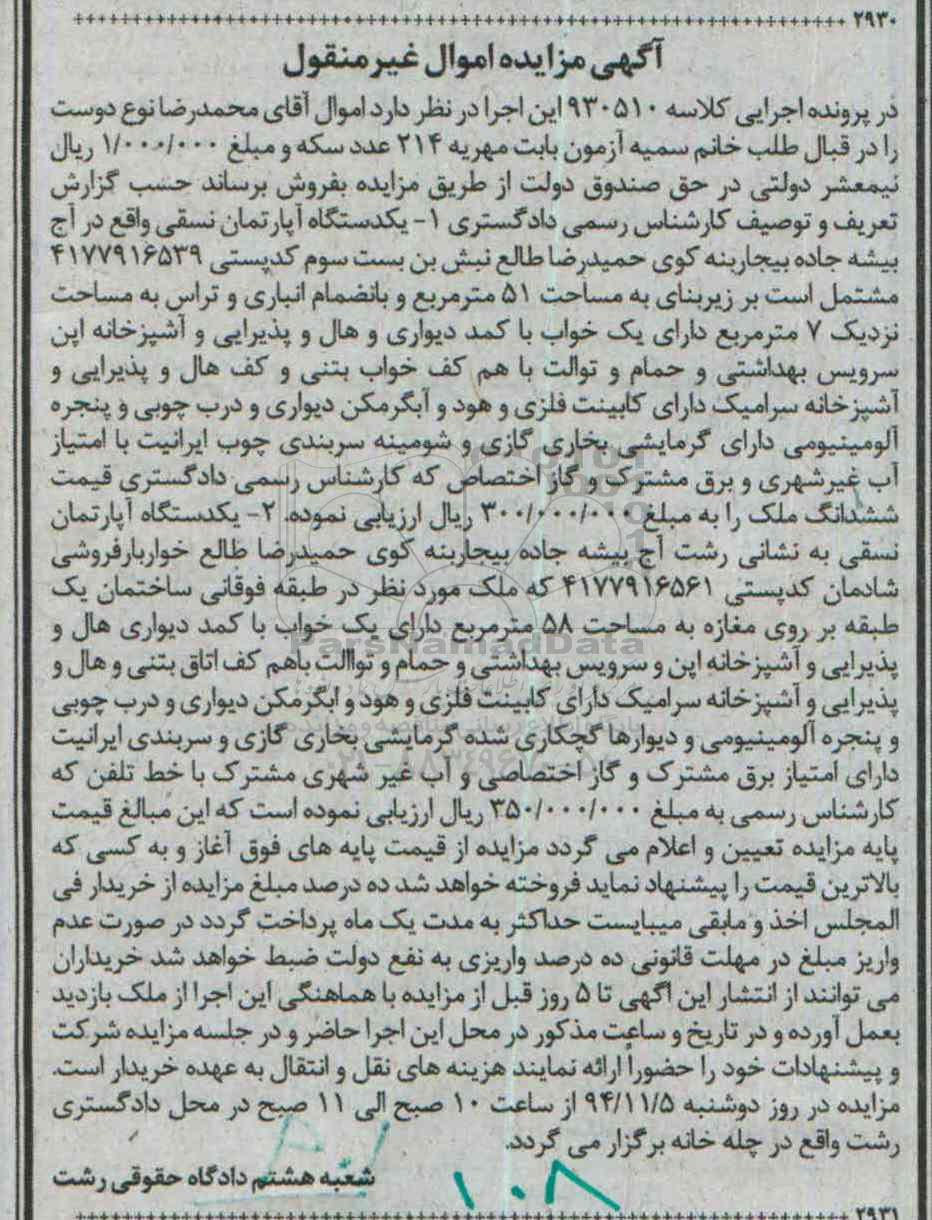 ۲۹۳۰
آگهی مزایده اموال غیرمنقول
در پرونده اجرایی کلاسه ۹۳۰۵۱۰ این اجرا در نظر دارد اموال آقای محمدرضا نوع دوست
را در قبال طلب خانم سمیه آزمون بابت مهریه ۲۱۴ عدد سکه و مبلغ ۱/۰۰۰/۰۰۰ ریال
نیمعشر دولتی در حق صندوق دولت از طریق مزایده بفروش برساند حسب گزارش
تعریف و توصیف کارشناس رسمی دادگستری ۱- یکدستگاه آپارتمان نسقی واقع در آج
بیشه جاده بیجاربنه کوی حمیدرضا طالع نبش بن بست سوم کدپستی ۴۱۷۷۹۱۶۵۳۹
مشتمل است بر زیربنای به مساحت ۵۱ مترمربع و بانضمام انباری و تراس به مساحت
نزدیک ۷ مترمربع دارای یک خواب با کمد دیواری و هال و پذیرایی و آشپزخانه اپن
سرویس بهداشتی و حمام و توالت با هم کف خواب بتنی و کف هال و پذیرایی و
آشپزخانه سرامیک دارای کابینت فلزی و هود و آبگرمکن دیواری و درب چوبی و پنجره
آلومینیومی دارای گرمایشی بخاری گازی و شومینه سربندی چوب ایرانیت با امتیاز
آب غیرشهری و برق مشترک و گاز اختصاص که کارشناس رسمی دادگستری قیمت
ششدانگ ملک را به مبلغ ۳۰۰/۰۰۰/۰۰۰ ریال ارزیابی نموده. ۲- یکدستگاه آپارتمان
نسقی به نشانی رشت آج بیشه جاده بیجاربنه کوی حمیدرضا طالع خواربارفروشی
شادمان کدپستی ۴۱۷۷۹۱۶۵۶۱ که ملک مورد نظر در طبقه فوقانی ساختمان یک
طبقه بر روی مغازه به مساحت ۵۸ مترمربع دارای یک خواب با کمد دیواری هال و
پذیرایی و آشپزخانه اپن و سرویس بهداشتی و حمام و تواالت باهم کف اتاق بتنی و هال و
پذیرایی و آشپزخانه سرامیک دارای کابینت فلزی و هود و ابگرمکن دیواری و درب چوبی
و پنجره آلومینیومی و دیوارها گچکاری شده گرمایشی بخاری گازی و سربندی ایرانیت
دارای امتیاز برق مشترک و گاز اختصاصی و آب غیر شهری مشترک با خط تلفن که
کارشناس رسمی به مبلغ ۳۵۰/۰۰۰/۰۰۰ ریال ارزیابی نموده است که این مبالغ قیمت
پایه مزایده تعیین و اعلام می گردد مزایده از قیمت پایه های فوق آغاز و به کسی که
بالاترین قیمت را پیشنهاد نماید فروخته خواهد شد ده درصد مبلغ مزایده از خریدار فی
المجلس اخذ و مابقی میبایست حداکثر به مدت یک ماه پرداخت گردد در صورت عدم
واریز مبلغ در مهلت قانونی ده درصد واریزی به نفع دولت ضبط خواهد شد خریداران
می توانند از انتشار این اگهی تا ۵ روز قبل از مزایده با هماهنگی این اجرا از ملک بازدید
بعمل آورده و در تاریخ و ساعت مذکور در محل این اجرا حاضر و در جلسه مزایده شرکت
و پیشنهادات خود را حضوراً ارائه نمایند هزینه های نقل و انتقال به عهده خریدار است.
مزایده در روز دوشنبه ۹۴/۱۱/۵ از ساعت ۱۰ صبح الی ۱۱ صبح در محل دادگستری
رشت واقع در چله خانه برگزار می گردد.
شعبه هشتم دادگاه حقوقی رشت
۱۰۸
۲۹۳۱
ParsNamadData